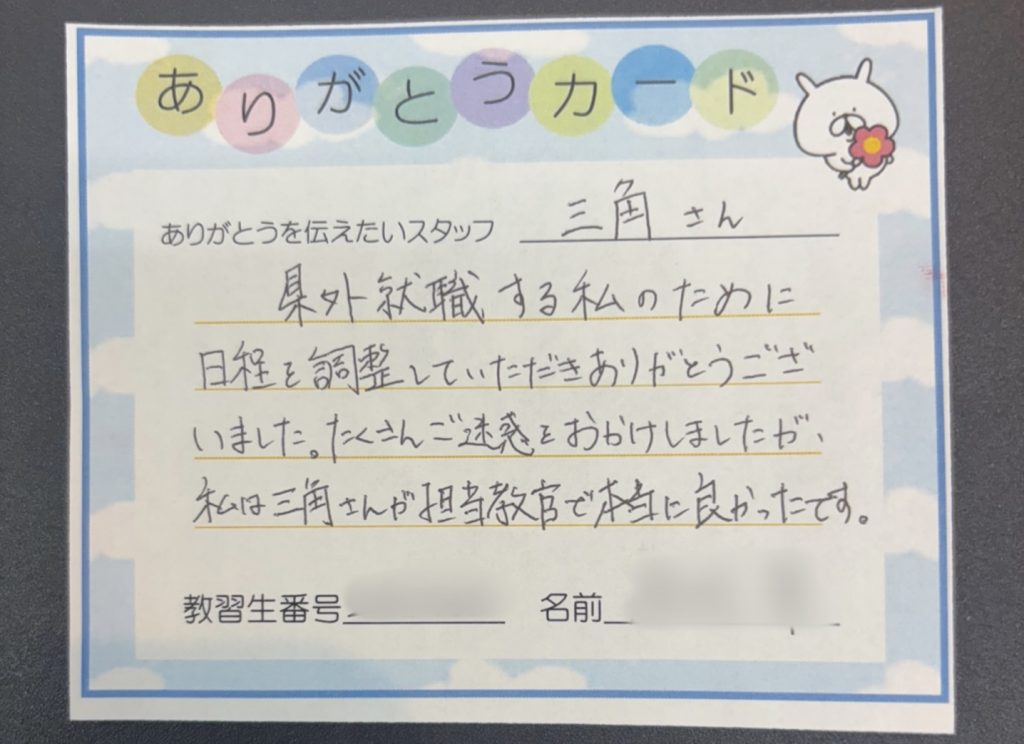 ありがとうカード
ありがとうを伝えたいスタッフ 三角 さん
県外就職する私のために
日程を調整していただきありがとうござ
いました。たくさんご迷惑をおかけしましたが、
私は三角さんが担当教官で本当に良かったです。
教習生番号 名前